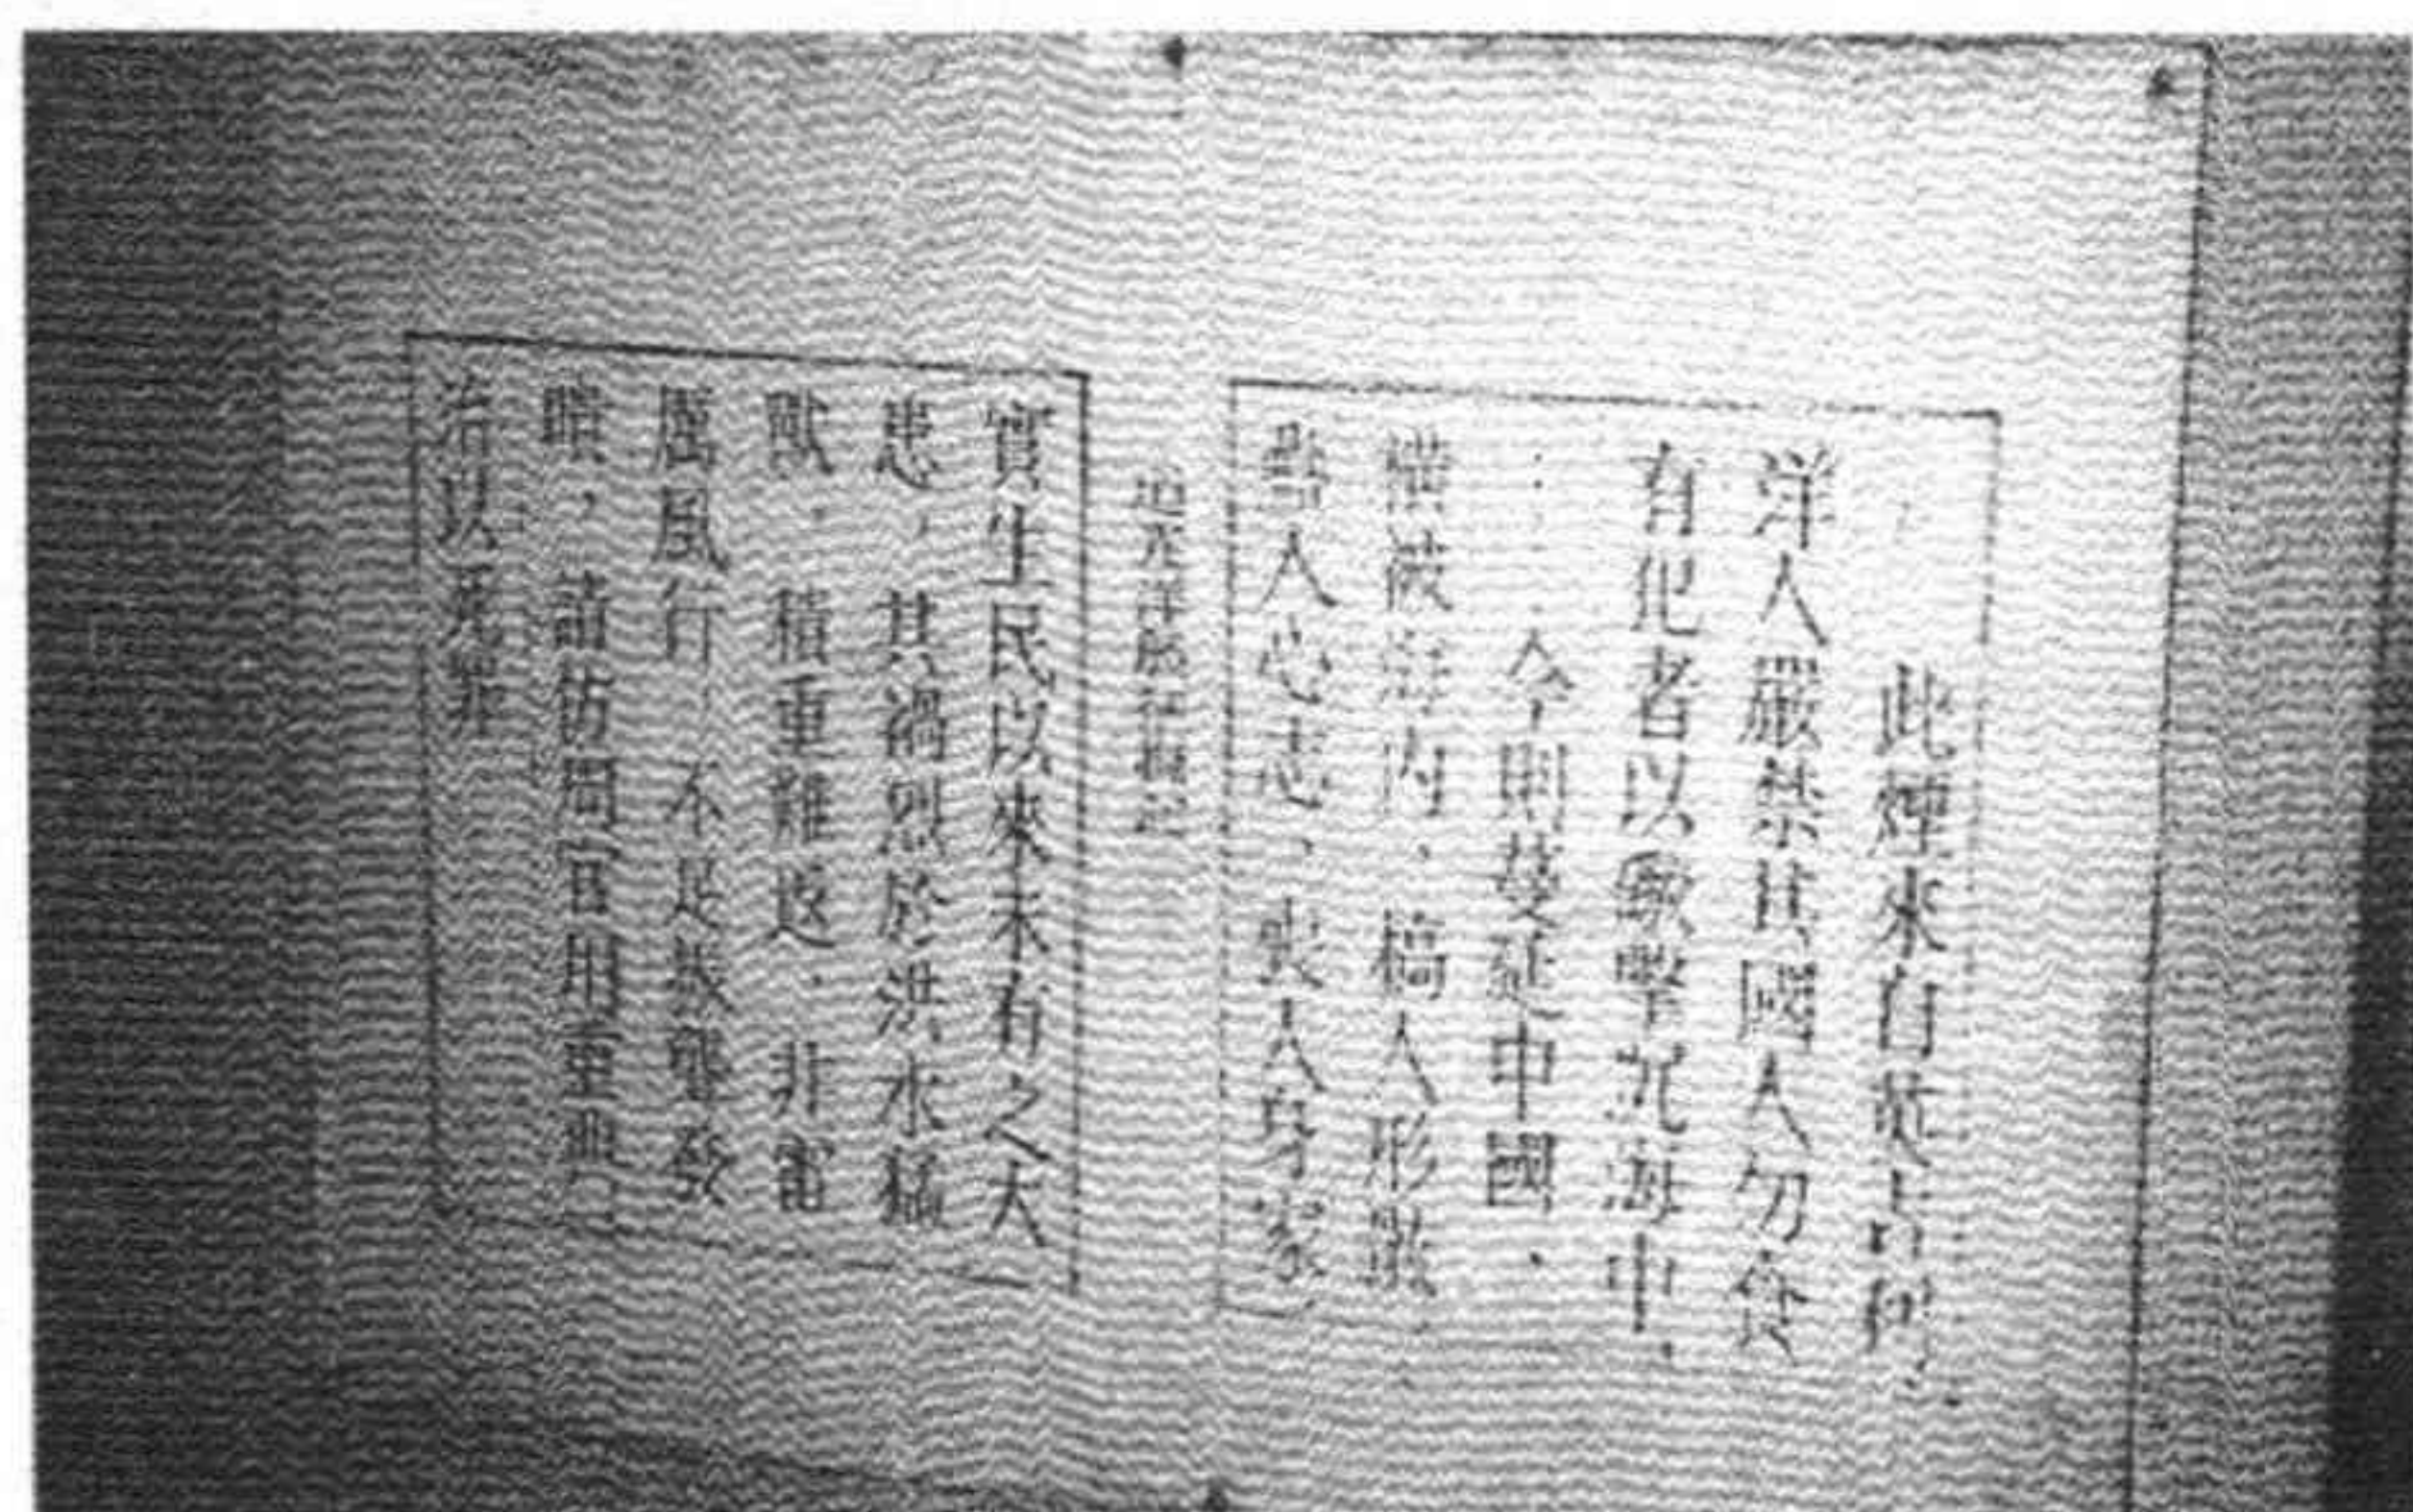 此煙來自英吉利，
洋人嚴禁其國人勿食
有犯者以礮擊沉海中，
……今則蔓延中國，
橫被海內，槁人形骸，
蠱人心志，喪人身家
道光洋艘征撫記
實生民以來未有之大
患，其禍烈於洪水猛
獸，積重難返，非雷
厲風行 不足振聾發
聵，請仿周官用重典
治以死罪